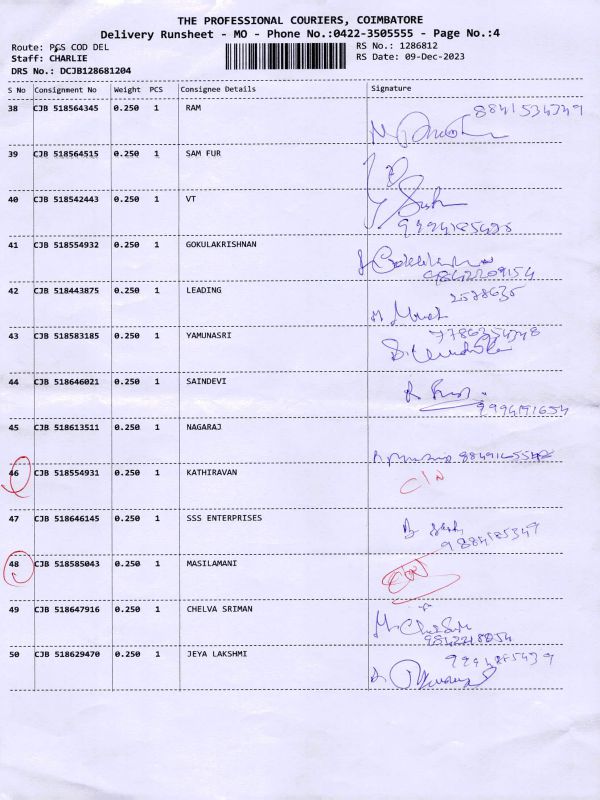 THE PROFESSIONAL COURIERS, COIMBATORE
Delivery Runsheet - MO - Phone No.:0422-3505555 - Page No.:4
Route: PGS COD DEL
RS No.: 1286812
Staff: CHARLIE
RS Date: 09-Dec-2023
DRS No.: DCJB128681204
S No Consignment No Weight PCS Consignee Details Signature
38 CJB 518564345 0.250 1 RAM 8841534349
39 CJB 518564515 0.250 1 SAM FUR
40 CJB 518542443 0.250 1 VT
41 CJB 518554932 0.250 1 GOKULAKRISHNAN
9842209154
42 CJB 518443875 0.250 1 LEADING 2578635
43 CJB 518583185 0.250 1 YAMUNASRI
44 CJB 518646021 0.250 1 SAINDEVI
9994191654
45 CJB 518613511 0.250 1 NAGARAJ
46 CJB 518554931 0.250 1 KATHIRAVAN
47 CJB 518646145 0.250 1 SSS ENTERPRISES
9884185349
48 CJB 518585043 0.250 1 MASILAMANI
49 CJB 518647916 0.250 1 CHELVA SRIMAN
9842218054
50 CJB 518629470 0.250 1 JEYA LAKSHMI